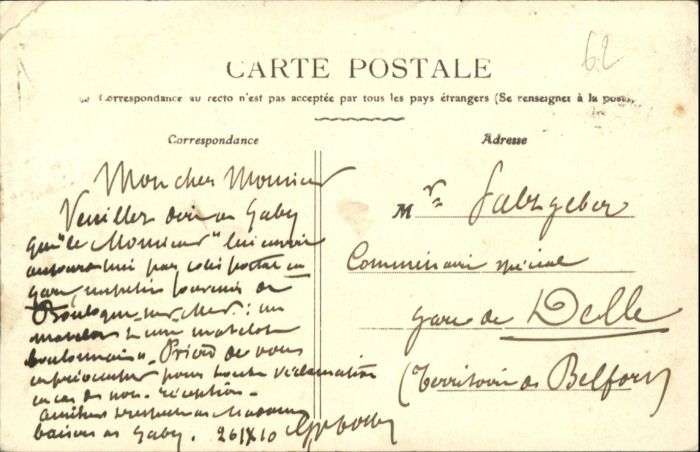 62
CARTE POSTALE
Correspondance au recto n'est pas acceptée par tous les pays étrangers (Se renseigner à la poste)
Correspondance
Adresse
Mon cher Monsieur
Veuillez dire à Gaby
que "le Monsieur" lui envoie
aujourd'hui par colis postal en
gare, un petit souvenir de
Boulogne-sur-Mer : un
matelot & une matelote
boulonnais. Prière de vous
en pour toute réclamation
en cas de non-réception.
respects à Madame
baisers à Gaby. 26 IX 10
Mr Salzgeber
Commissaire spécial
gare de Delle
(Territoire de Belfort)